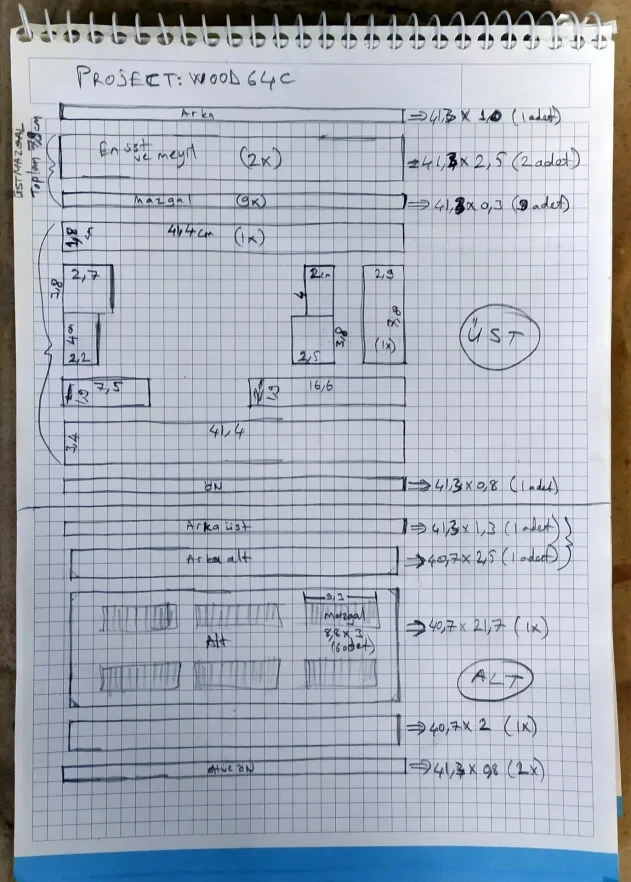 PROJECT: WOOD 64C
Arka ⇒ 41,3 x 1,0 (1 adet)
ÜST MAZGAL
Toplam 7,9 cm
En üst ve meyil (2x) ⇒ 41,3 x 2,5 (2 adet)
Mazgal (9x) ⇒ 41,3 x 0,3 (9 adet)
1,8 41,4 cm (1x)
2,7 2 cm 2,9
3,8 4 7,8
4 cm 3,8 (1x)
2,2 2,5
ÜST
7,5 16,6
3,4 41,4
ÖN ⇒ 41,3 x 0,8 (1 adet)
Arka üst ⇒ 41,3 x 1,3 (1 adet)
Arka alt ⇒ 40,7 x 2,5 (1 adet)
9,3
Mazgal
8,8 x 3
(6 adet)
Alt ⇒ 40,7 x 21,7 (1x)
ALT
⇒ 40,7 x 2 (1x)
⇒ 41,3 x 0,8 (2x)